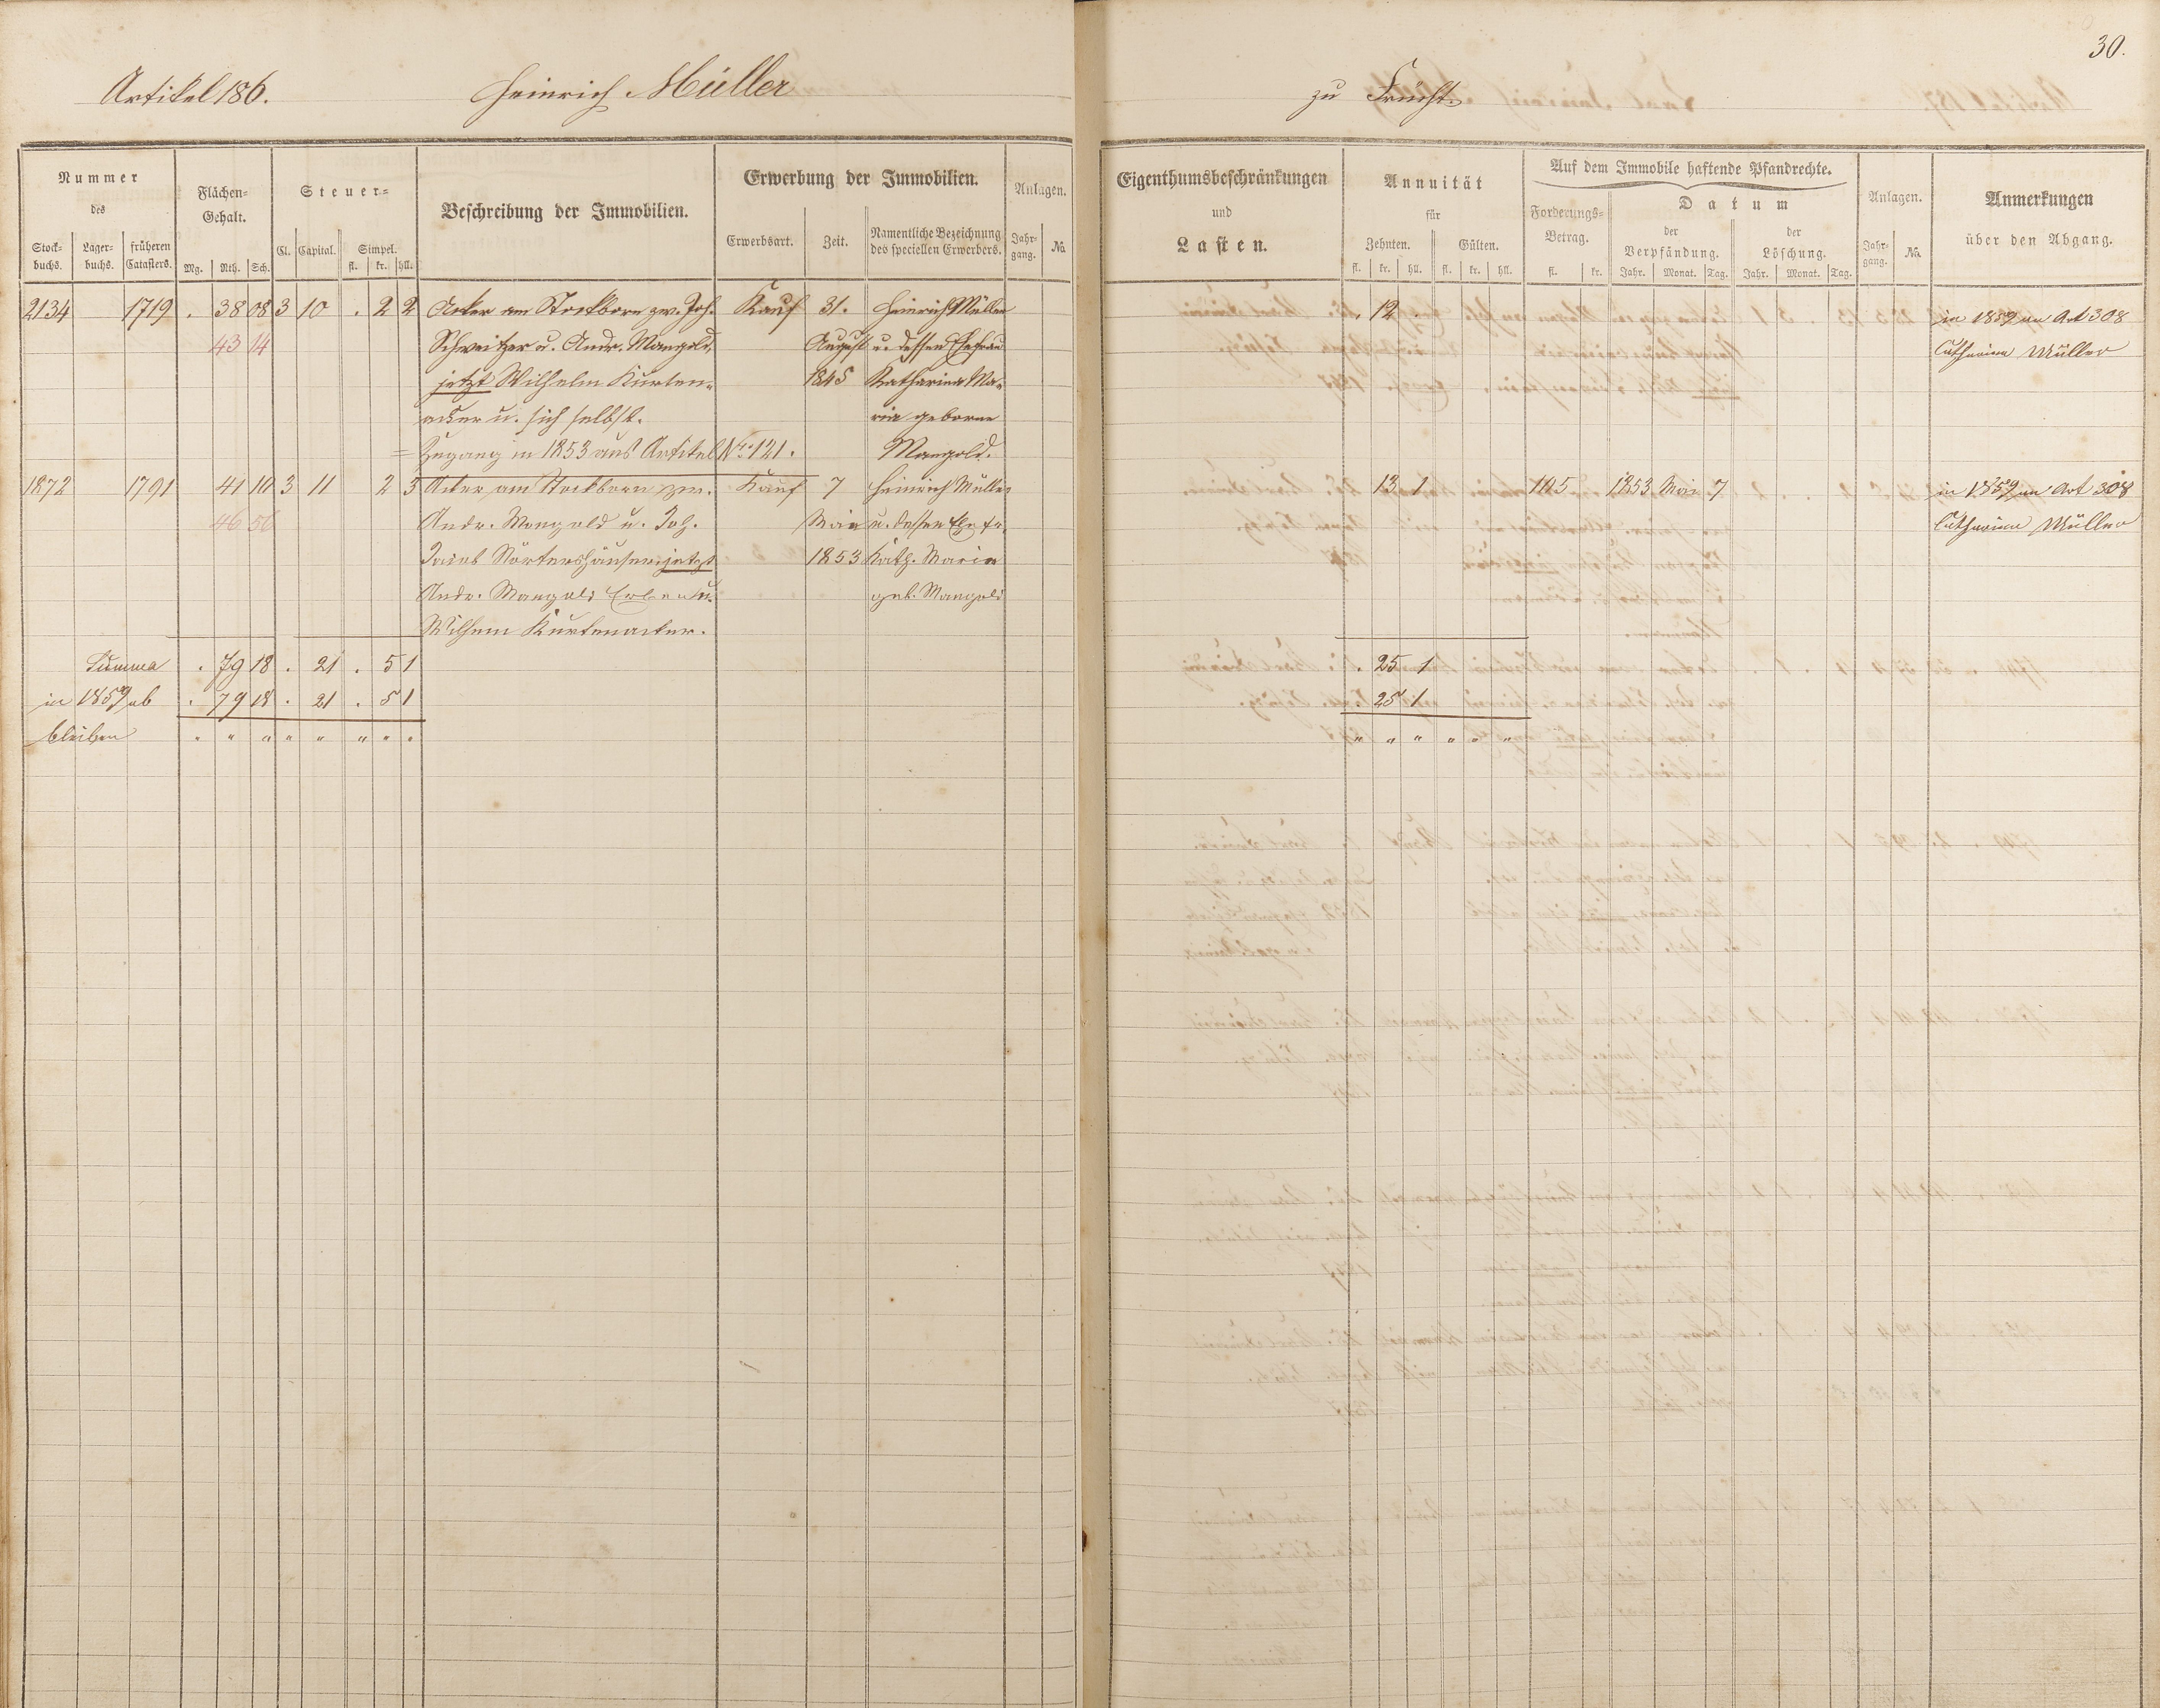 30.
Artikel 186. Heinrich Müller zu Frücht.
Nummer
des
Stock-
buchs.
Lager-
buchs.
früheren
Catasters.
Flächen-
Gehalt.
Mg. Rth. Sch.
Steuer-
Cl. Capital. Simpel.
fl. kr. hll.
Beschreibung der Immobilien.
Erwerbung der Immobilien.
Erwerbsart. Zeit. Namentliche Bezeichnung
des speciellen Erwerbers.
Anlagen.
Jahr-
gang. No.
Eigenthumsbeschränkungen
und
Lasten.
Annuität
für
Zehnten. Gülten.
fl. kr. hll. fl. kr. hll.
Auf dem Immobile haftende Pfandrechte.
Forderungs-
Betrag.
fl. kr.
Datum
der
Verpfändung.
Jahr. Monat. Tag.
der
Löschung.
Jahr. Monat. Tag.
Anlagen.
Jahr-
gang. No.
Anmerkungen
über den Abgang.
2134 1719 . 38 08 3 10 . 2 2 Acker am Stockborn zw. Joh. Kauf 31. Heinrich Müller . 12 . in 1859 an Art 308
43 14 Schweitzer u. Andr. Mangold, August u. dessen Ehefrau Catharina Müller
jetzt Wilhelm Kurten- 1845 Katharina Ma-
acker u. sich selbst. ria geborne
= Zugang in 1853 aus Artikel No. 121. Mangold.
1872 1791 41 10 3 11 2 3 Acker am Stockborn zw. Kauf 7 Heinrich Müller 13 1 105 1853 Mai 7 in 1859 an Art 308
46 56 Andr. Mangold u. Joh. Mai u. dessen Ehefr. Catharina Müller
Jacob Nörtershäuser jetzt 1853 Kath. Maria
Andr. Mangold Erben u. geb. Mangold
Wilhem Kurtenacker.
Summa . 79 18 . 21 . 5 1 . 25 1
in 1859 ab . 79 18 . 21 . 5 1 . 25 1
bleiben " " " " " " " " " " " " " "